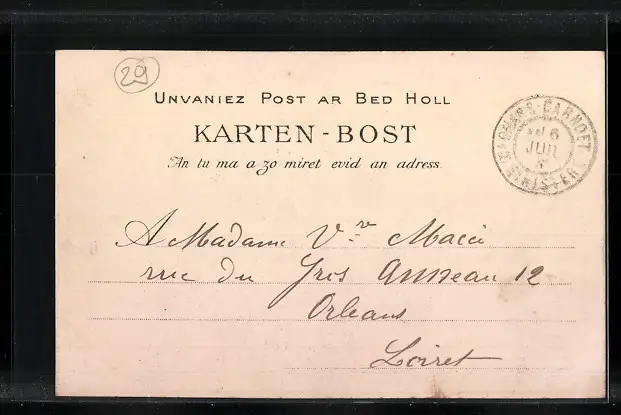 29
UNVANIEZ POST AR BED HOLL
KARTEN-BOST
An tu ma a zo miret evid an adress.
CLOHARS-CARNOET
6
JUIL
FINISTERE
A Madame Vve Macé
rue du Gros Anneau 12
Orléans
Loiret